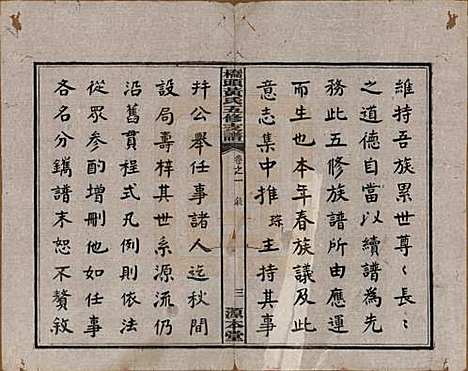 維持吾族累世尊〻長〻
之道德自當以續譜為先
務此五修族譜所由應運
而生也本年春族議及此
意志集中推琮主持其事
橋頭黃氏五修支譜
卷之一
三
源本堂
并公舉任事諸人迄秋間
設局壽梓其世系源流仍
沿舊貫程式凡例則依法
從眾參酌增刪他如任事
各名分鐫譜末恕不贅敘